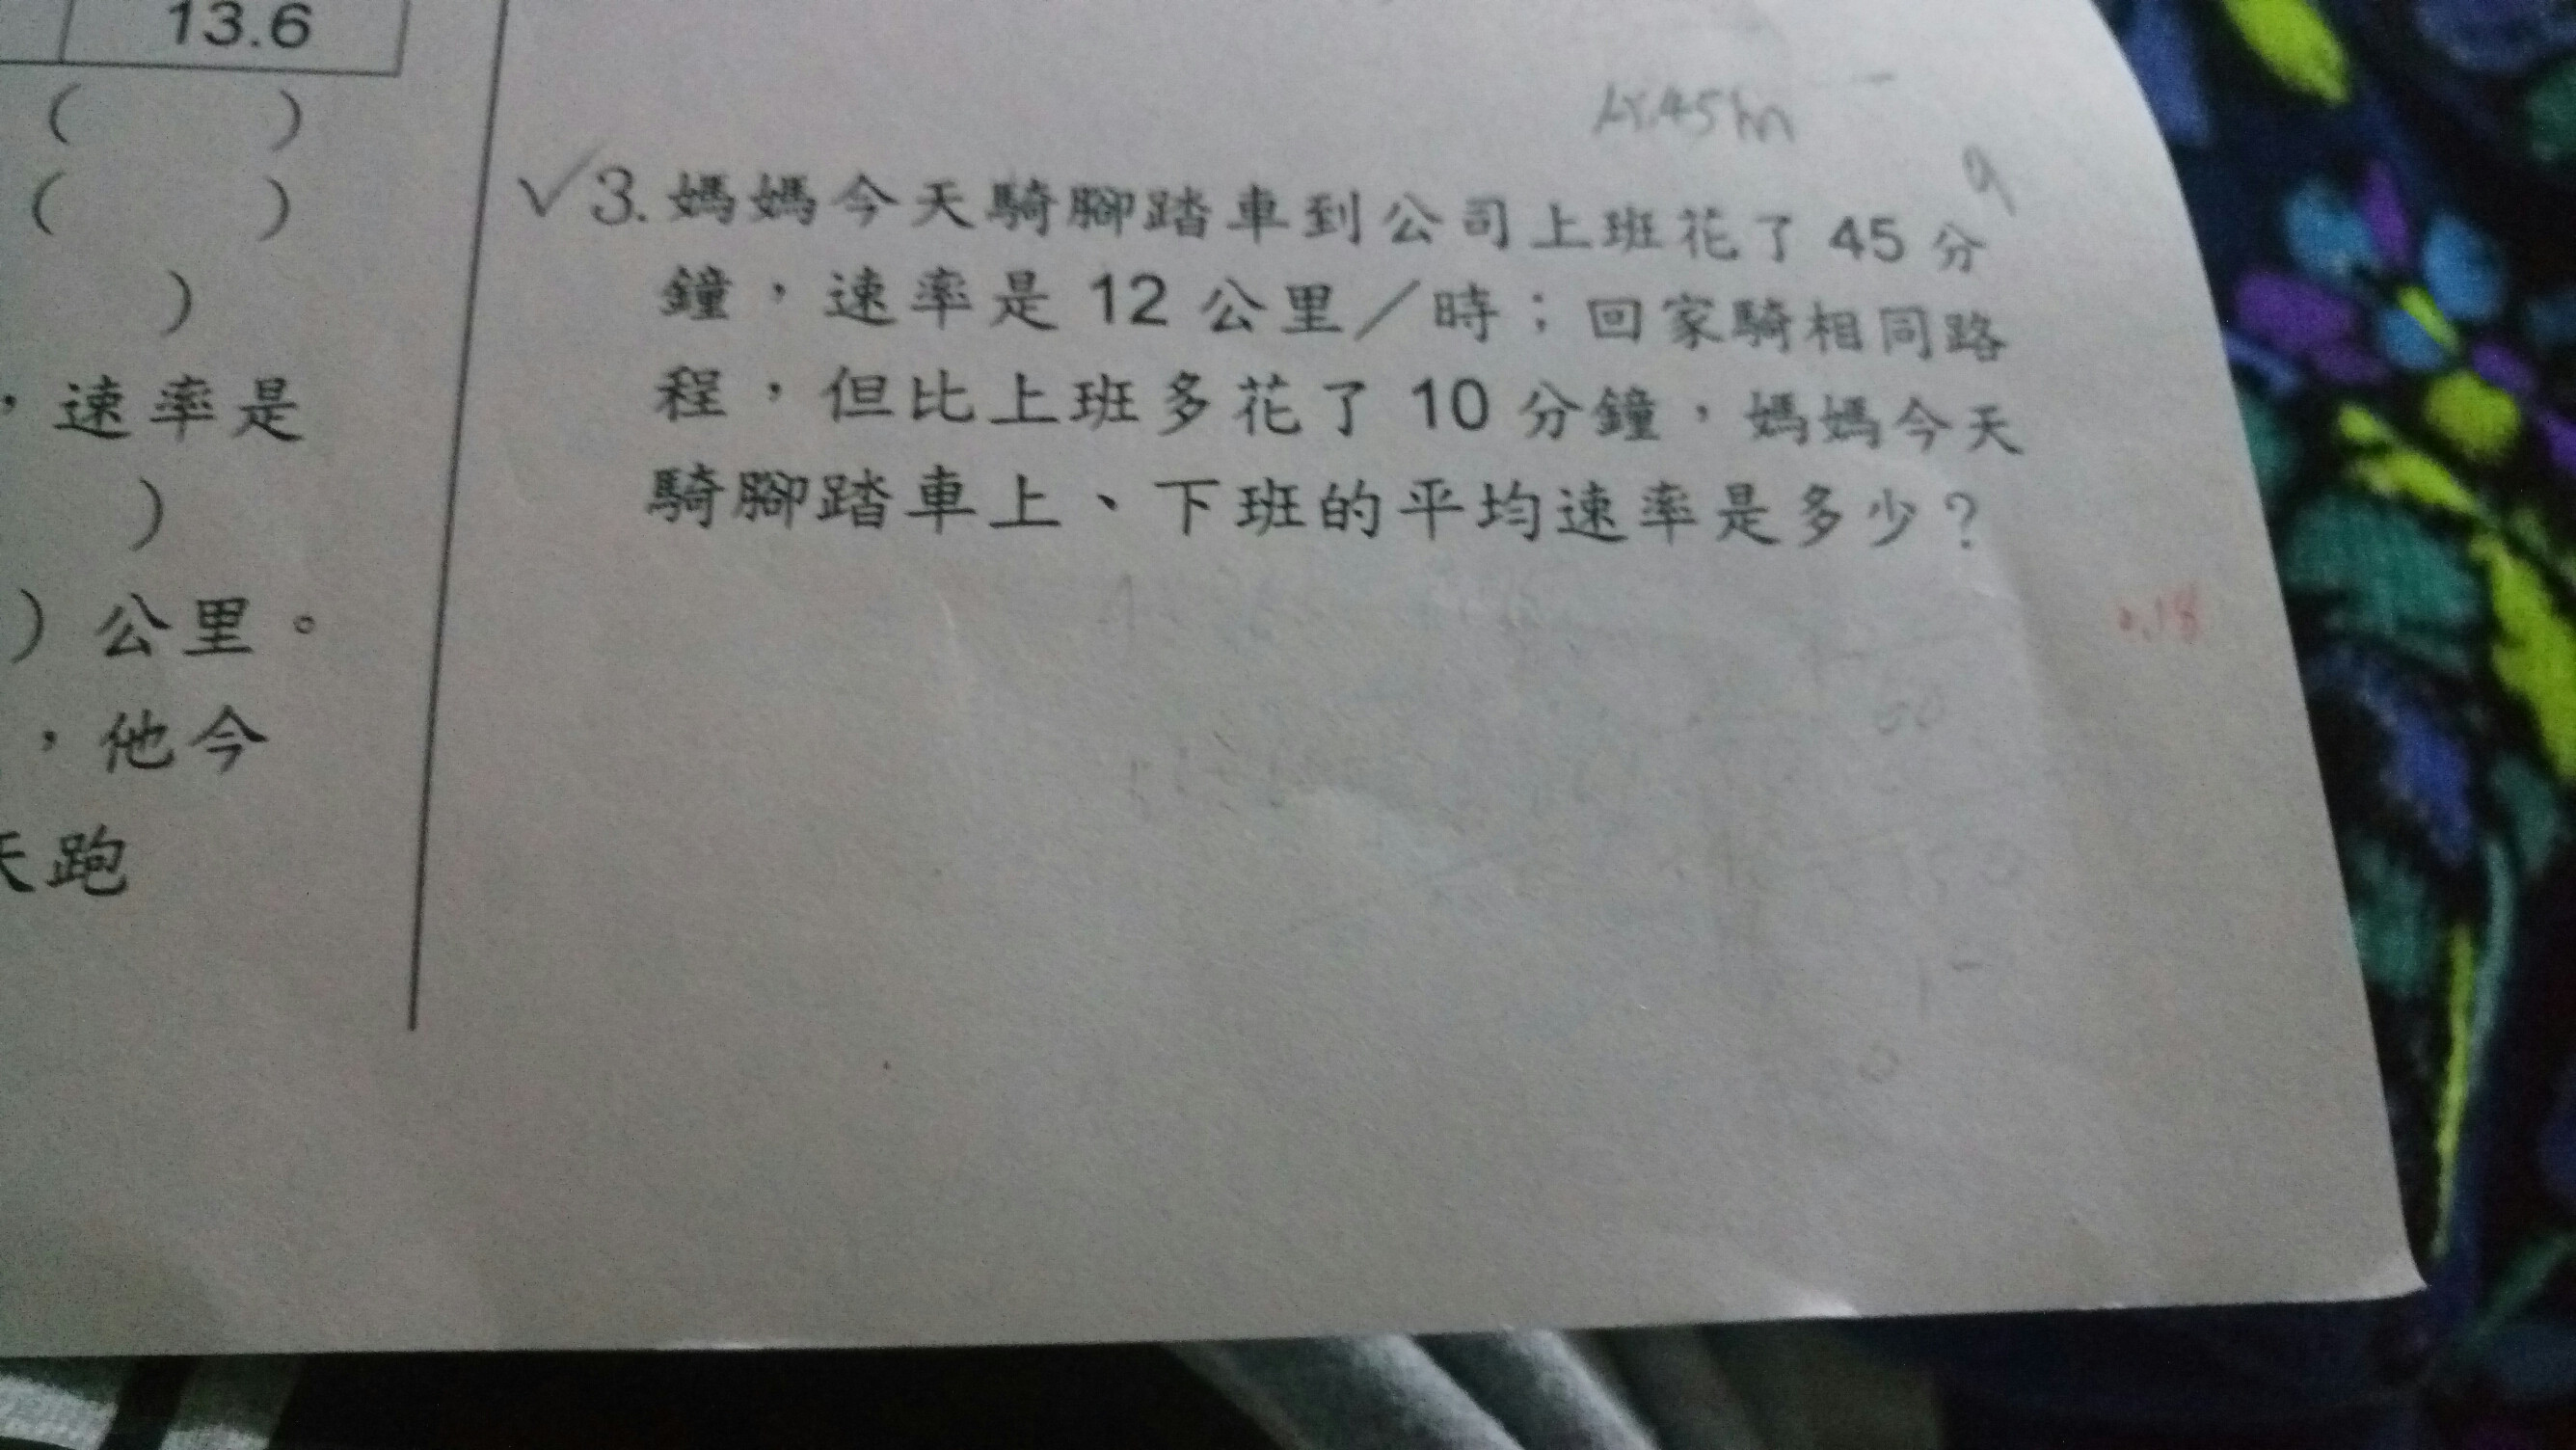 13.6
( )
( )
)
，速率是
)
) 公里。
，他今
天跑
45m
9
✓3. 媽媽今天騎腳踏車到公司上班花了 45 分
鐘，速率是 12 公里／時；回家騎相同路
程，但比上班多花了 10 分鐘，媽媽今天
騎腳踏車上、下班的平均速率是多少？